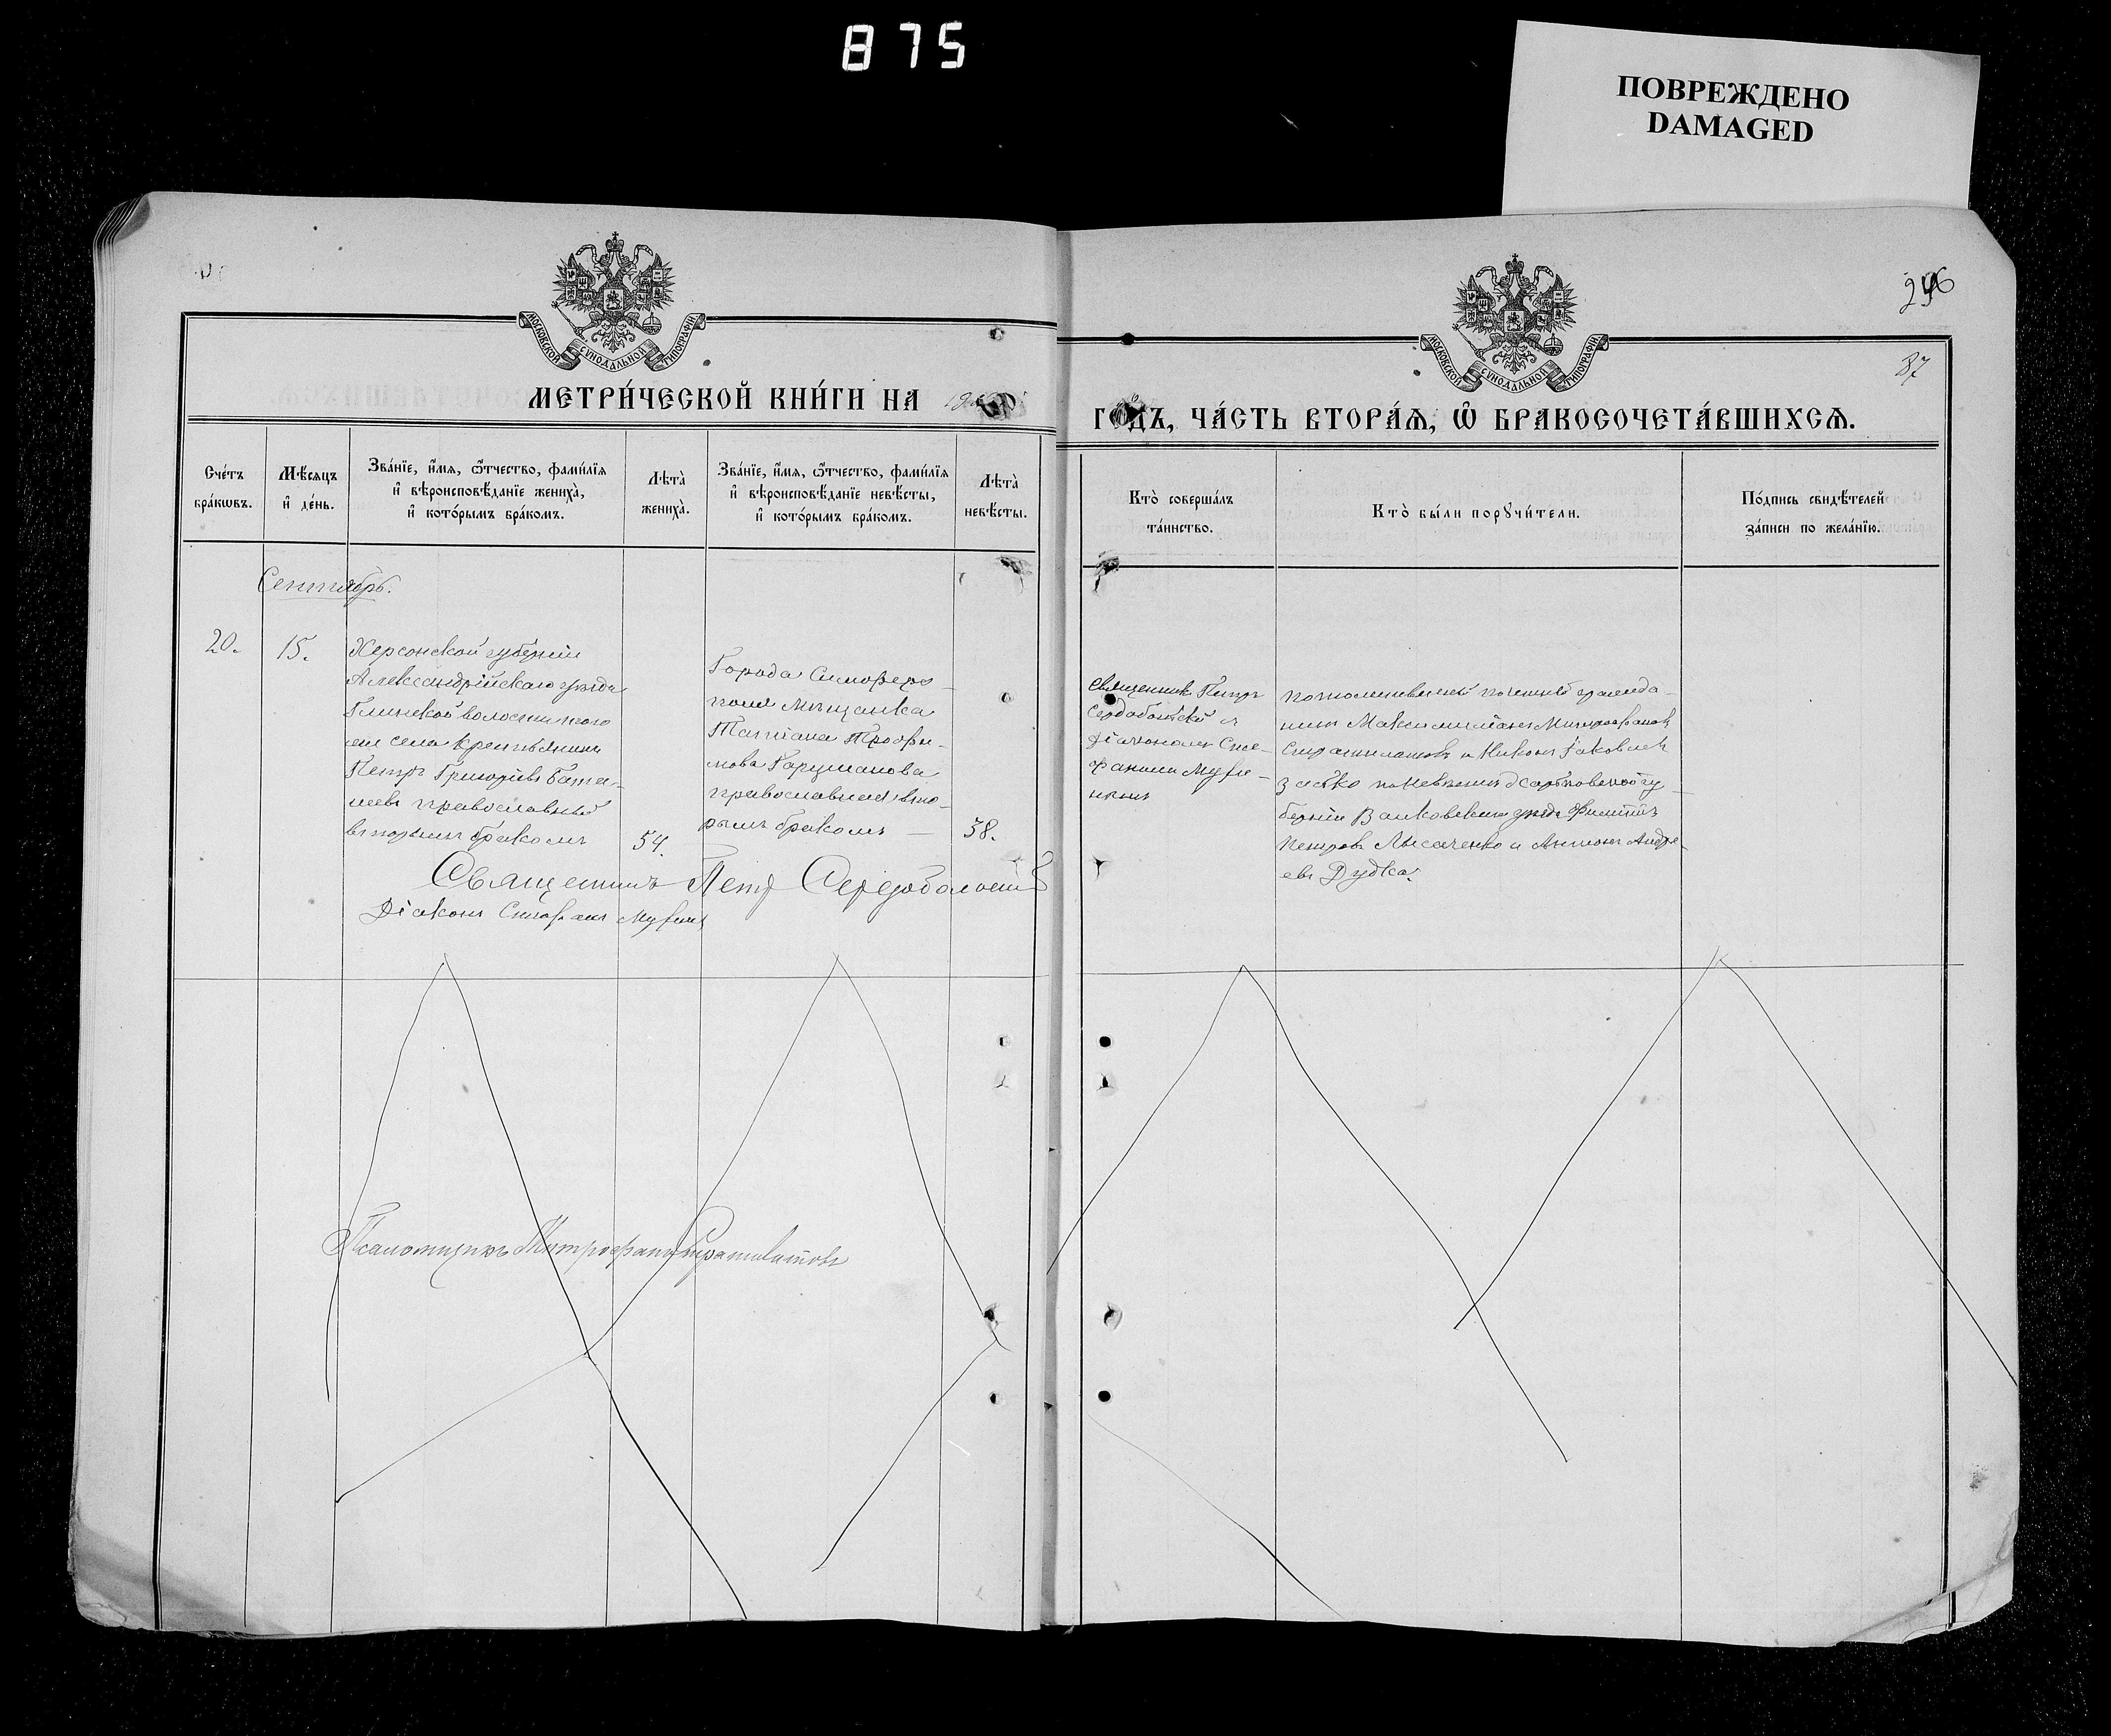 875
ПОВРЕЖДЕНО
DAMAGED
246
87
МОСКОВСКОЙ СѴНОДАЛЬНОЙ ТИПОГРАФІИ
МОСКОВСКОЙ СѴНОДАЛЬНОЙ ТИПОГРАФІИ
МЕТРИ́ЧЕСКОЙ КНИ́ГИ НА
ГО́ДЪ, ЧА́СТЬ ВТОРА́Ѧ, Ѽ БРАКОСОЧЕТА́ВШИХСѦ.
Сче́тъ бра́кѡвъ.
Мѣ́сяцъ и҆ де́нь.
Зва́нїе, и҆́мя, ѻ҆́тчество, фами́лїя
и҆ вѣроисповѣ́данїе жениха̀,
и҆ кото́рымъ бра́комъ.
Лѣта̀ жениха̀.
Зва́нїе, и҆́мя, ѻ҆́тчество, фами́лїя
и҆ вѣроисповѣ́данїе невѣ́сты,
и҆ кото́рымъ бра́комъ.
Лѣта̀ невѣ́сты.
Кто̀ соверша́лъ
та́инство.
Кто̀ бы́ли порꙋчи́тели.
По́дпись свидѣ́телей
за́писи по жела́нїю.
Сентябрь.
20.
15.
Херсонской губерніи
Александрійскаго уѣзда
Глинской волости того
же села крестьянинъ
Петръ Григорьевъ
православный
вторымъ бракомъ
54.
Города Симферо-
поля мѣщанка
Татіана Трофи-
мова
православная вто-
рымъ бракомъ —
38.
Священникъ Петръ
Сердобольскій и
Діакономъ Сте-
фаномъ
потомственный почетный гражда-
нинъ Максимиліанъ Митрофановъ
Стратилатовъ и Никонъ Яковлевъ
по невѣстѣ Харьковской гу
берніи Валковскаго уѣзда Филиппъ
Петровъ Лысаченко и Антонъ Андре-
евъ Дудка.
Священникъ Петръ Сердобольскій
Діаконъ Стефанъ
Псаломщикъ Митрофанъ Стратилатовъ